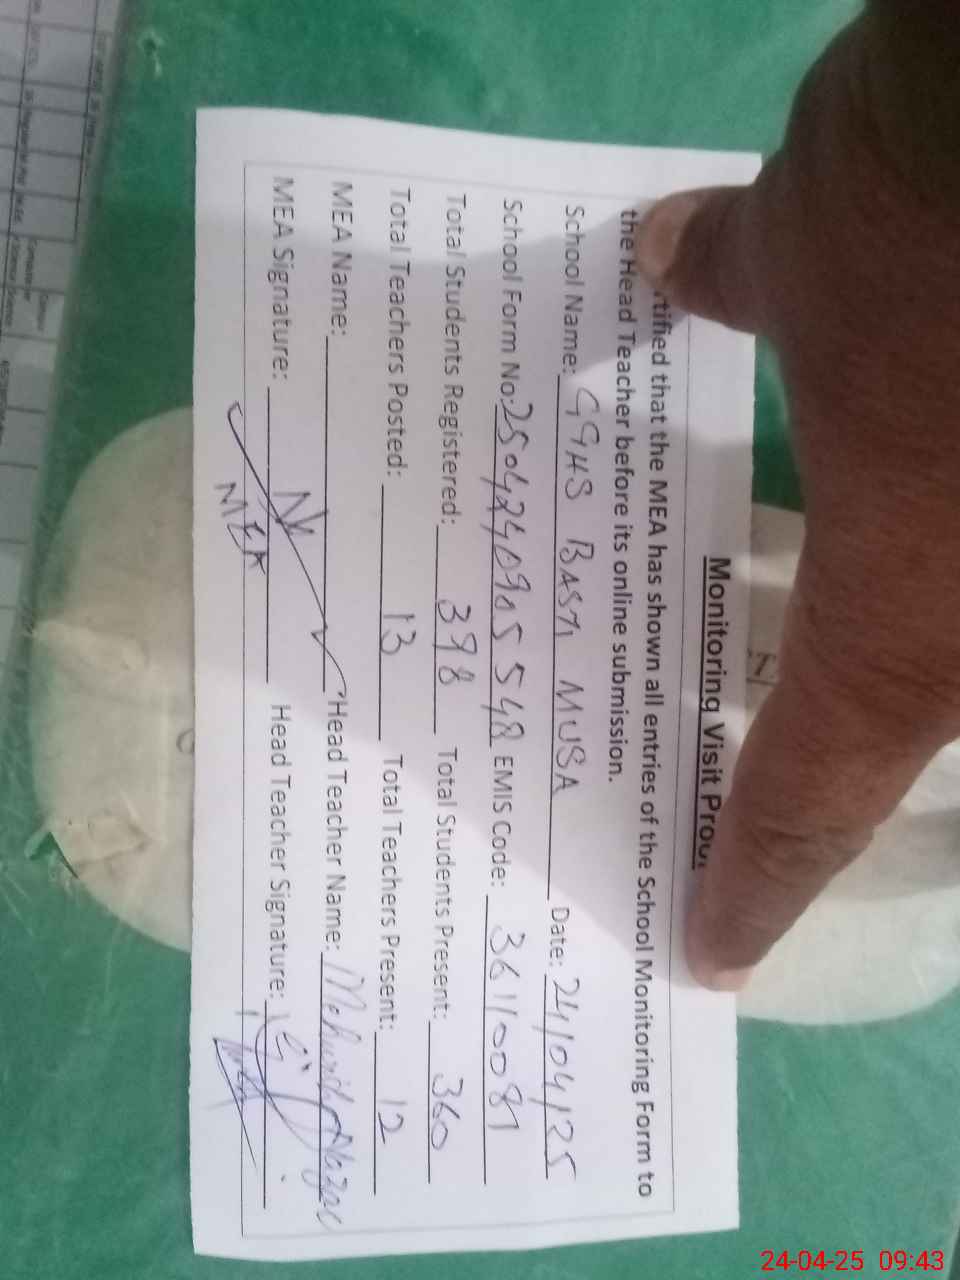 Monitoring Visit
that the MEA has shown all entries of the School Monitoring Form to
the Head Teacher before its online submission.
School Name: GGHS BASTI MUSA Date: 24/04/25
School Form No: EMIS Code: 36110081
Total Students Registered: 398 Total Students Present: 360
Total Teachers Posted: 13 Total Teachers Present: 12
MEA Name: Head Teacher Name:
MEA Signature: Head Teacher Signature:
MEA
24-04-25 09:43